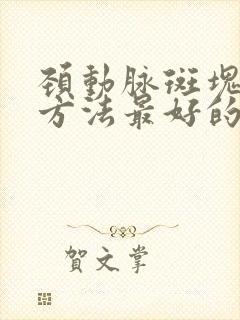 頚動脉斑塊
方法最好的
賀文掌